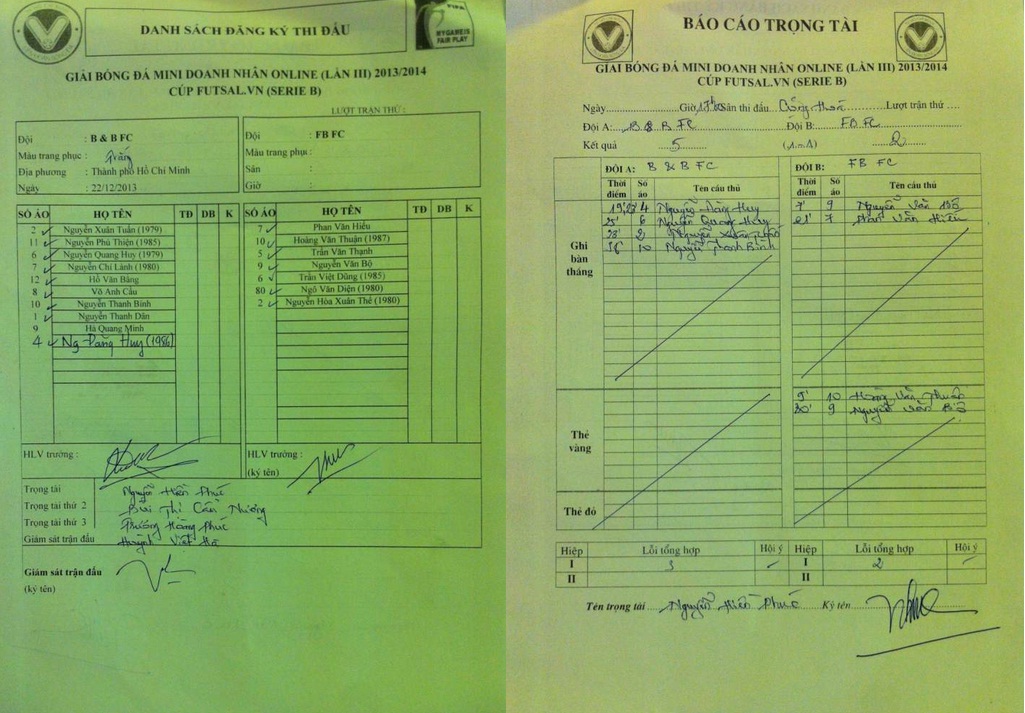 FIFA
MY GAME IS
FAIR PLAY
DANH SÁCH ĐĂNG KÝ THI ĐẤU
GIẢI BÓNG ĐÁ MINI DOANH NHÂN ONLINE (LẦN III) 2013/2014
CÚP FUTSAL.VN (SERIE B)
LƯỢT TRẬN THỨ :
Đội : B & B FC
Màu trang phục : Trắng
Địa phương : Thành phố Hồ Chí Minh
Ngày : 22/12/2013
Đội : FB FC
Màu trang phục :
Sân :
Giờ :
SỐ ÁO HỌ TÊN TĐ DB K
2 Nguyễn Xuân Tuấn (1979)
11 Nguyễn Phú Thiện (1985)
6 Nguyễn Quang Huy (1979)
7 Nguyễn Chí Lành (1980)
12 Hồ Văn Bằng
8 Võ Anh Cầu
10 Nguyễn Thanh Bình
1 Nguyễn Thanh Dân
9 Hà Quang Minh
4 Ng Đăng Huy (1986)
SỐ ÁO HỌ TÊN TĐ DB K
7 Phan Văn Hiếu
10 Hoàng Văn Thuận (1987)
5 Trần Văn Thạnh
9 Nguyễn Văn Bộ
6 Trần Việt Dũng (1985)
80 Ngô Văn Diện (1980)
2 Nguyễn Hòa Xuân Thế (1980)
HLV trưởng :
HLV trưởng :
(ký tên)
Trọng tài Nguyễn Hiền Phúc
Trọng tài thứ 2 Bùi Thị Nương
Trọng tài thứ 3 Trương Hồng Phúc
Giám sát trận đấu Huỳnh Viết
Giám sát trận đấu
(ký tên)
BÁO CÁO TRỌNG TÀI
GIẢI BÓNG ĐÁ MINI DOANH NHÂN ONLINE (LẦN III) 2013/2014
CÚP FUTSAL.VN (SERIE B)
Ngày Giờ 17h Sân thi đấu Lượt trận thứ
Đội A: B & B FC Đội B: FB FC
Kết quả 5 2
ĐỘI A: B & B FC
Thời điểm Số áo Tên cầu thủ
19',23' 4 Nguyễn Đăng Huy
25' 6 Nguyễn Quang Huy
28' 2 Nguyễn Xuân
36' 10 Nguyễn Thanh Bình
ĐỘI B: FB FC
Thời điểm Số áo Tên cầu thủ
7' 9 Nguyễn Văn Bộ
21' 7 Phan Văn Hiếu
Ghi bàn thắng
Thẻ vàng
9' 10 Hoàng Văn Thuận
30' 9 Nguyễn Văn Bộ
Thẻ đỏ
Hiệp Lỗi tổng hợp Hội ý Hiệp Lỗi tổng hợp Hội ý
I 3 I 2
II II
Tên trọng tài Nguyễn Hiền Phúc Ký tên